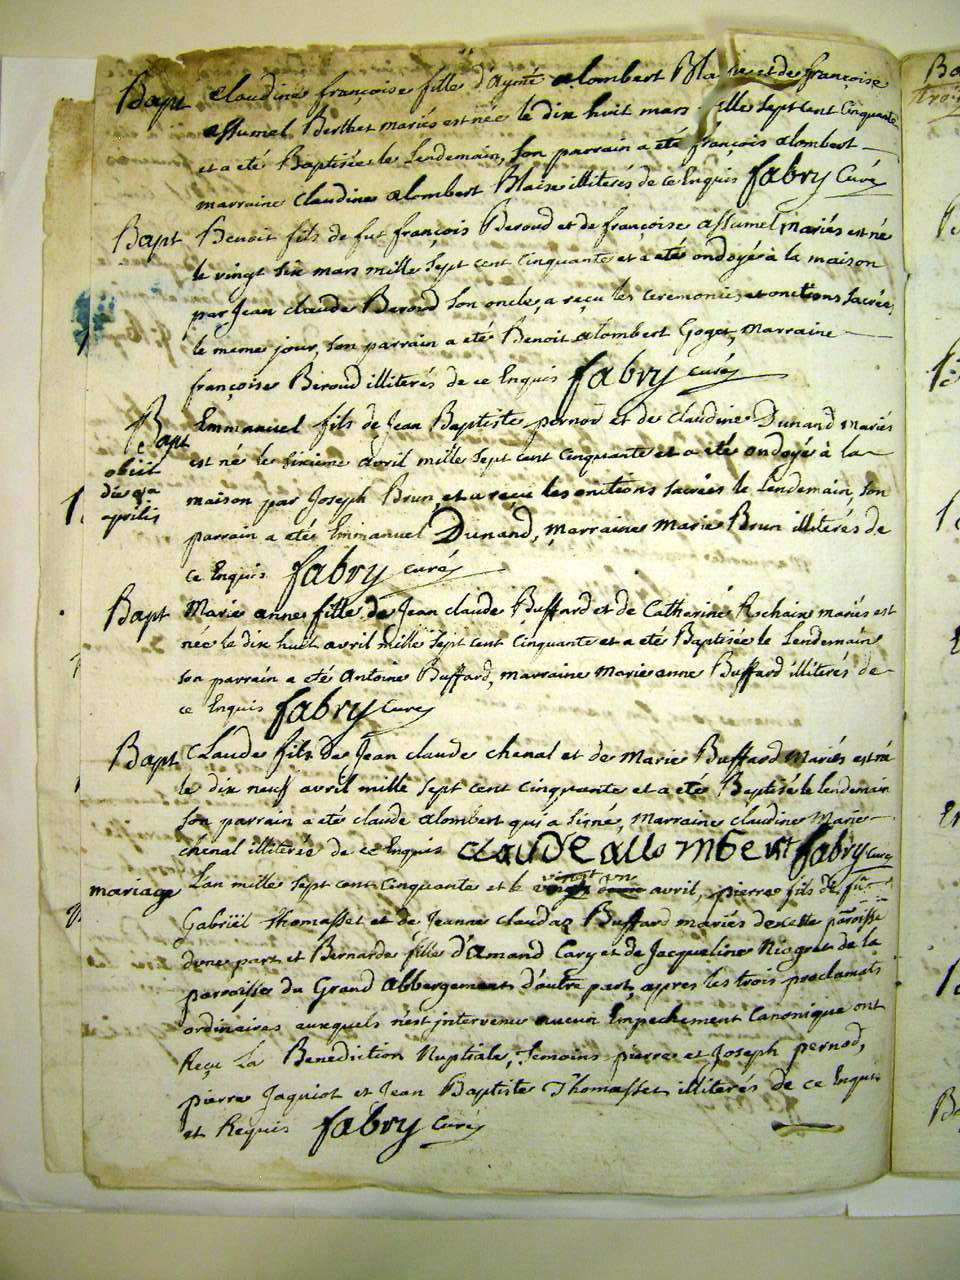 Bapt claudine françoise fille d'Aymé alombert Blaise et de françoise
assumel Berthet mariés est née le dix huit mars mille sept cent cinquante
et a eté Baptisée le Lendemain, son parrain a eté françois alombert
marraine claudine alombert Blaise illiterés de ce Enquis fabry Curé
Bapt Benoit fils de fut françois Beroud et de françoise assumel mariés est né
le vingt six mars mille sept cent cinquante et a eté ondoyé à la maison
par Jean claude Beroud son oncle, a reçu les ceremonies et onctions sacrées
le meme jour, son parrain a eté Benoit alombert Goget, Marraine
françoise Beroud illiterés de ce Enquis fabry curé
Bapt Emmanuel fils de Jean Baptiste pernod et de claudine Dunand mariés
est né le sixieme avril mille sept cent cinquante et a eté ondoyé à la
obiit die 9a aprilis
maison par Joseph Brun et a reçu les onctions sacrées le Lendemain, son
parrain a eté Emmanuel Dunand, marraine Marie Brun illiterés de
ce Enquis fabry curé
Bapt Marie anne fille de Jean claude Buffard et de Catherine Aschaix mariés est
née le dix huit avril mille sept cent cinquante et a eté Baptisée le Lendemain
son parrain a eté Antoine Buffard, marraine Marie anne Buffard illiterés de
ce Enquis fabry curé
Bapt Claude fils de Jean claude chenal et de Marie Buffard Mariés est né
le dix neuf avril mille sept cent cinquante et a eté Baptisé le lendemain
son parrain a eté claude alombert qui a signé, Marraine claudine Marie
chenal illiterée de ce Enquis claude allombert fabry curé
vingt un
mariage L'an mille sept cent cinquante et le avril, pierre fils de fut
Gabriël Thomasset et de Jeanne claudaz Buffard mariés de cette paroisse
d'une part et Bernarde fille d'Amand Cary et de Jacqueline Niogret de la
parroisse du Grand Abbergement d'autre part, apres les trois proclamats
ordinaires auxquels n'est intervenu aucun Empechement Canonique ont
Reçu La Benediction Nuptiale, temoins pierre et Joseph pernod,
pierre Jaquiot et Jean Baptiste Thomasset illiterés de ce Enquis
et Requis fabry Curé